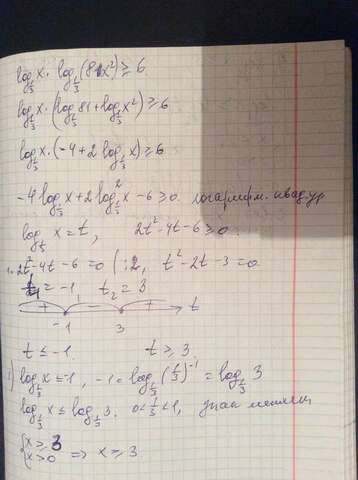 log_{1/3} x · log_{1/3} (81x²) ≥ 6
log_{1/3} x · (log_{1/3} 81 + log_{1/3} x²) ≥ 6
log_{1/3} x · (-4 + 2 log_{1/3} x) ≥ 6
-4 log_{1/3} x + 2 log²_{1/3} x - 6 ≥ 0. логарифм. квад. ур
log_{1/3} x = t, 2t² - 4t - 6 ≥ 0
2t² - 4t - 6 = 0 (:2, t² - 2t - 3 = 0
t₁ = -1 t₂ = 3
+ - + t
-1 3
t ≤ -1. t ≥ 3.
1) log_{1/3} x ≤ -1, -1 = log_{1/3} (1/3)^{-1} = log_{1/3} 3
log_{1/3} x ≤ log_{1/3} 3. 0 < 1/3 < 1, знак меняем
{x ≥ 3
{x > 0 ⇒ x ≥ 3